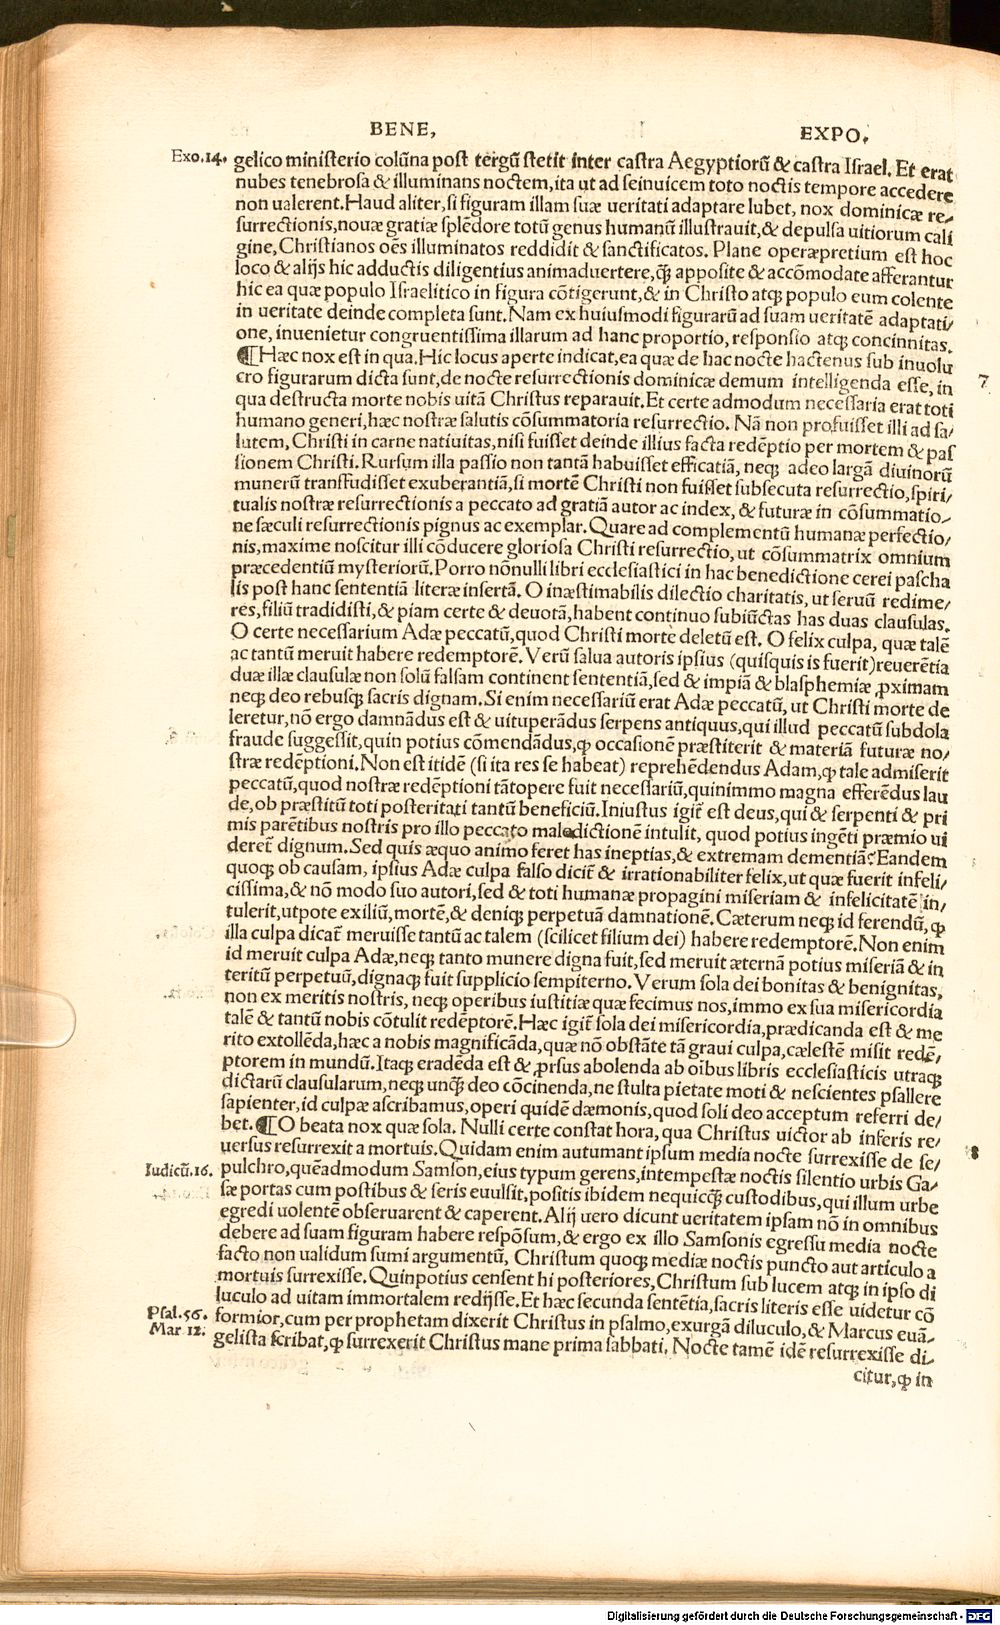 BENE, EXPO.
Exo.14. gelico ministerio colũna post tergũ stetit inter castra Aegyptiorũ & castra Israel. Et erat
nubes tenebrosa & illuminans noctem, ita ut ad seinuicem toto noctis tempore accedere
non ualerent. Haud aliter, si figuram illam suæ ueritati adaptare lubet, nox dominicæ re/
surrectionis, nouæ gratiæ splẽdore totũ genus humanũ illustrauit, & depulsa uitiorum cali
gine, Christianos oẽs illuminatos reddidit & sanctificatos. Plane operæpretium est hoc
loco & alijs hic adductis diligentius animaduertere, q̃ȝ apposite & accõmodate afferantur
hic ea quæ populo Israelitico in figura cõtigerunt, & in Christo atqȝ populo eum colente
in ueritate deinde completa sunt. Nam ex huiusmodi figurarũ ad suam ueritatẽ adaptati/
one, inuenietur congruentissima illarum ad hanc proportio, responsio atqȝ concinnitas.
¶ Hæc nox est in qua. Hic locus aperte indicat, ea quæ de hac nocte hactenus sub inuolu
cro figurarum dicta sunt, de nocte resurrectionis dominicæ demum intelligenda esse, in 7
qua destructa morte nobis uitã Christus reparauit. Et certe admodum necessaria erat toti
humano generi, hæc nostræ salutis cõsummatoria resurrectio. Nã non profuisset illi ad sa/
lutem, Christi in carne natiuitas, nisi fuisset deinde illius facta redẽptio per mortem & pas
sionem Christi. Rursum illa passio non tantã habuisset efficatiã, neqȝ adeo largã diuinorũ
munerũ transfudisset exuberantiã, si mortẽ Christi non fuisset subsecuta resurrectio, spiri/
tualis nostræ resurrectionis a peccato ad gratiã autor ac index, & futuræ in cõsummatio/
ne sæculi resurrectionis pignus ac exemplar. Quare ad complementũ humanæ perfectio/
nis, maxime noscitur illi cõducere gloriosa Christi resurrectio, ut cõsummatrix omnium
præcedentiũ mysteriorũ. Porro nõnulli libri ecclesiastici in hac benedictione cerei pascha
lis post hanc sententiã literæ insertã. O inæstimabilis dilectio charitatis, ut seruũ redime/
res, filiũ tradidisti, & piam certe & deuotã, habent continuo subiũctas has duas clausulas.
O certe necessarium Adæ peccatũ, quod Christi morte deletũ est. O felix culpa, quæ talẽ
ac tantũ meruit habere redemptorẽ. Verũ salua autoris ipsius (quisquis is fuerit) reuerẽtia
duæ illæ clausulæ non solũ falsam continent sententiã, sed & impiã & blasphemiæ ꝓximam
neqȝ deo rebusqȝ sacris dignam. Si enim necessariũ erat Adæ peccatũ, ut Christi morte de
leretur, nõ ergo damnãdus est & uituperãdus serpens antiquus, qui illud peccatũ subdola
fraude suggessit, quin potius cõmendãdus, ꝙ occasionẽ præstiterit & materiã futuræ no/
stræ redẽptioni. Non est itidẽ (si ita res se habeat) reprehẽdendus Adam, ꝙ tale admiserit
peccatũ, quod nostræ redẽptioni tãtopere fuit necessariũ, quinimmo magna efferẽdus lau
de, ob præstitũ toti posteritati tantũ beneficiũ. Iniustus igit̃ est deus, qui & serpenti & pri
mis parẽtibus nostris pro illo peccato maledictionẽ intulit, quod potius ingẽti præmio ui
deret̃ dignum. Sed quis æquo animo feret has ineptias, & extremam dementiã? Eandem
quoqȝ ob causam, ipsius Adæ culpa falso dicit̃ & irrationabiliter felix, ut quæ fuerit infeli/
cissima, & nõ modo suo autori, sed & toti humanæ propagini miseriam & infelicitatẽ in/
tulerit, utpote exiliũ, mortẽ, & deniqȝ perpetuã damnationẽ. Cæterum neqȝ id ferendũ, ꝙ
illa culpa dicat̃ meruisse tantũ ac talem (scilicet filium dei) habere redemptorẽ. Non enim
id meruit culpa Adæ, neqȝ tanto munere digna fuit, sed meruit æternã potius miseriã & in
teritũ perpetuũ, dignaqȝ fuit supplicio sempiterno. Verum sola dei bonitas & benignitas,
non ex meritis nostris, neqȝ operibus iustitiæ quæ fecimus nos, immo ex sua misericordia
talẽ & tantũ nobis cõtulit redẽptorẽ. Hæc igit̃ sola dei misericordia, prædicanda est & me
rito extollẽda, hæc a nobis magnificãda, quæ nõ obstãte tã graui culpa, cælestẽ misit redẽ/
ptorem in mundũ. Itaqȝ eradẽda est & ꝓrsus abolenda ab oĩbus libris ecclesiasticis utraqȝ
dictarũ clausularum, neqȝ unq̃ȝ deo cõcinenda, ne stulta pietate moti & nescientes psallere
sapienter, id culpæ ascribamus, operi quidẽ dæmonis, quod soli deo acceptum referri de/
bet. ¶ O beata nox quæ sola. Nulli certe constat hora, qua Christus uictor ab inferis re/
uersus resurrexit a mortuis. Quidam enim autumant ipsum media nocte surrexisse de se/ 8
Iudicũ.16. pulchro, quẽadmodum Samson, eius typum gerens, intempestæ noctis silentio urbis Ga/
sæ portas cum postibus & seris euulsit, positis ibidem nequicq̃ȝ custodibus, qui illum urbe
egredi uolentẽ obseruarent & caperent. Alij uero dicunt ueritatem ipsam nõ in omnibus
debere ad suam figuram habere respõsum, & ergo ex illo Samsonis egressu media nocte
facto non ualidum sumi argumentũ, Christum quoqȝ mediæ noctis puncto aut articulo a
mortuis surrexisse. Quinpotius censent hi posteriores, Christum sub lucem atqȝ in ipso di
luculo ad uitam immortalem redijsse. Et hæc secunda sentẽtia, sacris literis esse uidetur cõ
Psal.56. formior, cum per prophetam dixerit Christus in psalmo, exurgã diluculo, & Marcus euã/
Mar 12. gelista scribat, ꝙ surrexerit Christus mane prima sabbati. Nocte tamẽ idẽ resurrexisse di/
citur, ꝙ in
Digitalisierung gefördert durch die Deutsche Forschungsgemeinschaft - DFG